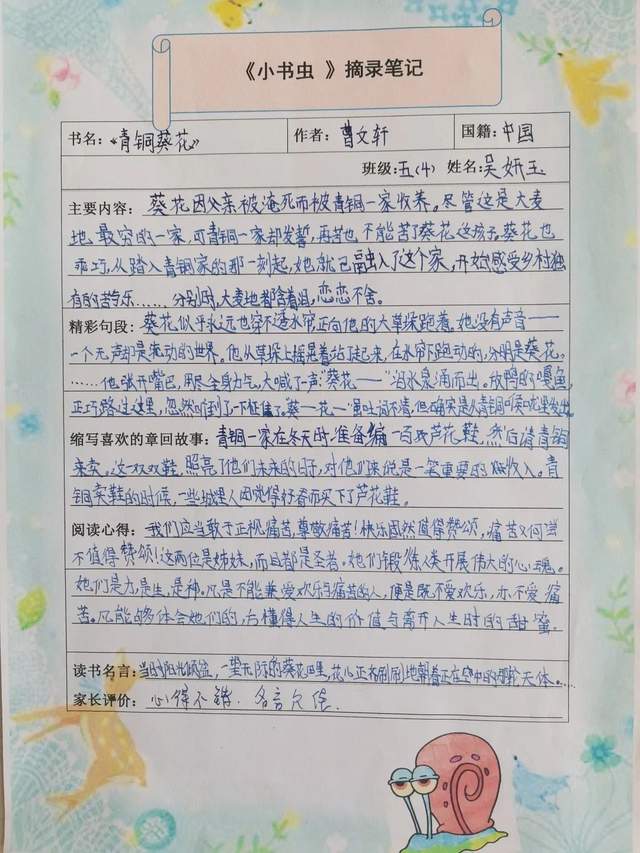 《小书虫 》摘录笔记
书名：《青铜葵花》 作者：曹文轩 国籍：中国
班级：五(4) 姓名：吴妍玉
主要内容： 葵花因父亲被淹死而被青铜一家收养。尽管这是大麦
地最穷的一家，可青铜一家却发誓，再苦也不能苦了葵花这孩子。葵花也
乖巧，从踏入青铜家的那一刻起，她就已融入了这个家，开始感受乡村独
有的苦与乐……分别时，大麦地都含着泪，恋恋不舍。
精彩句段：葵花似乎永远也穿不透水帘正向他的大草垛跑着。她没有声音——
一个无声却是流动的世界。他从草垛上摇晃着站了起来，在水帘下跑动的，分明是葵花。
……他张开嘴巴，用尽全身力气，大喊了一声："葵花——"泪水泉涌而出。放鸭的嘎鱼，
正巧路过这里，忽然听到了一下怔住了。葵—花—虽吐词不清，但确实是从青铜喉咙里发出
缩写喜欢的章回故事：青铜一家在冬天时准备编一百双芦花鞋，然后请青铜
来卖。这一双双鞋，照亮了他们未来的日子，对他们来说是一笔重要的收入。青
铜卖鞋的时候，一些城里人因觉得好看而买下了芦花鞋。
阅读心得：我们应当敢于正视痛苦，尊敬痛苦！快乐固然值得赞颂，痛苦又何尝
不值得赞颂！这两位是姊妹，而且都是圣者。她们锻炼人类开展伟大的心魂。
她们是力，是生，是神。凡是不能兼爱欢乐与痛苦的人，便是既不爱欢乐，亦不爱痛
苦。凡能够体会她们的，方懂得人生的价值与离开人生时的甜蜜
读书名言：当时阳光倾盆，一望无际的葵花田里，花心正齐刷刷地朝着正在空中的那轮天体。……
家长评价： 心得不错，名言欠佳.